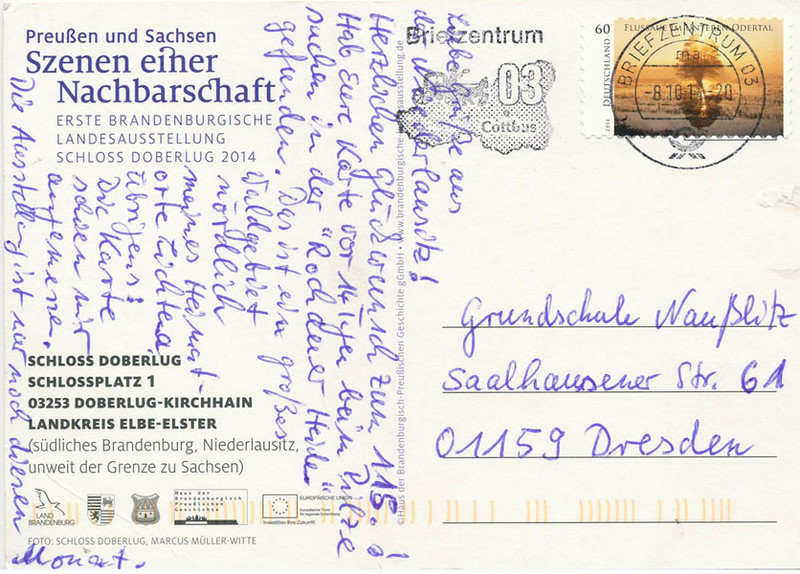 Preußen und Sachsen
Szenen einer
Nachbarschaft
ERSTE BRANDENBURGISCHE
LANDESAUSSTELLUNG
SCHLOSS DOBERLUG 2014
Liebe Grüße aus
der Niederlausitz!
Herzlichen Glückwunsch zum 115.!
Hab Eure Karte vor 14 Tgen beim Pilze
suchen in der "Rochauer Heide"
gefunden. Das ist ein großes
Waldgebiet
nördlich
meines Heimat-
ortes
übrigens:
Die Karte
schon mir
Die Ausstellung ist nur noch diesen
Monat.
SCHLOSS DOBERLUG
SCHLOSSPLATZ 1
03253 DOBERLUG-KIRCHHAIN
LANDKREIS ELBE-ELSTER
(südliches Brandenburg, Niederlausitz,
unweit der Grenze zu Sachsen)
LAND
BRANDENBURG
Haus der
Brandenburgisch
EUROPÄISCHE UNION
Investition in Ihre Zukunft!
FOTO: SCHLOSS DOBERLUG, MARCUS MÜLLER-WITTE
©Haus der Brandenburgisch-Preußischen Geschichte gGmbH • www.brandenburgische-landesausstellung.de
Briefzentrum
03
Cottbus
60
FLUSSAUE IM UNTEREN ODERTAL
DEUTSCHLAND
2014
BRIEFZENTRUM 03
ma
-8.10.1 -20
Grundschule Naußlitz
Saalhausener Str. 61
01159 Dresden